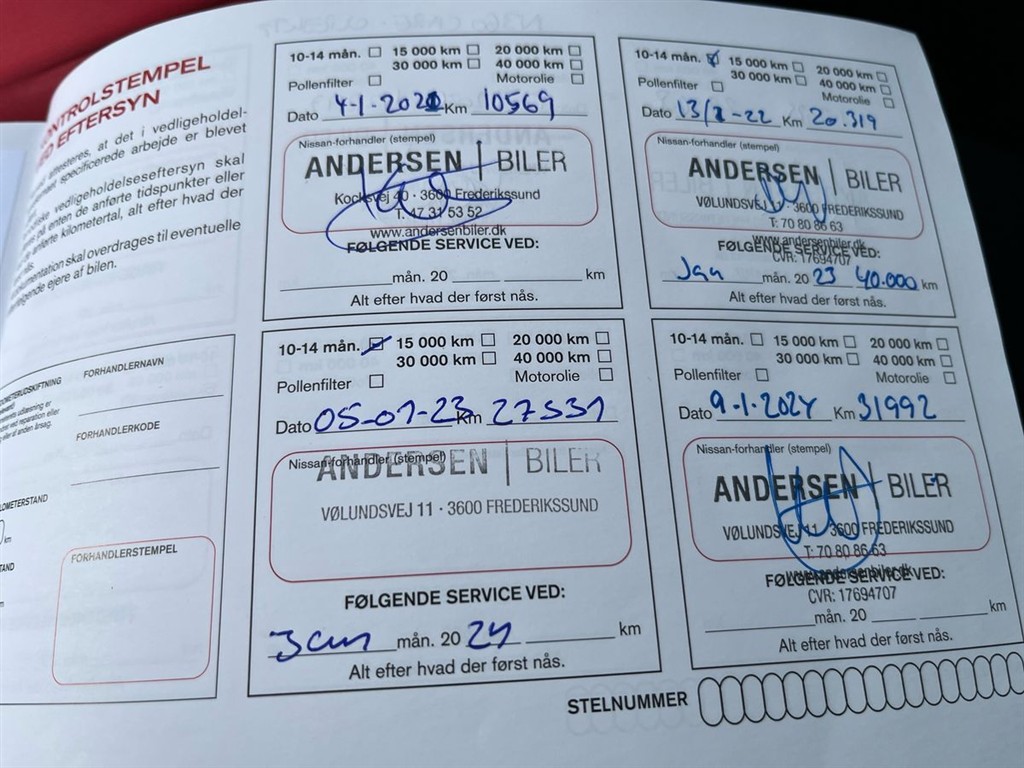 KONTROLSTEMPEL
EFTERSYN
attesteres, at det i vedligeholdel-
specificerede arbejde er blevet
vedligeholdelseseftersyn skal
på enten de anførte tidspunkter eller
anførte kilometertal, alt efter hvad der
skal overdrages til eventuelle
ejere af bilen.
10-14 mån. 15 000 km 20 000 km
30 000 km 40 000 km
Pollenfilter Motorolie
Dato 4-1-2021 Km 10569
Nissan-forhandler (stempel)
ANDERSEN | BILER
Kocksvej 40 · 3600 Frederikssund
T. 47 31 53 52
www.andersenbiler.dk
FØLGENDE SERVICE VED:
mån. 20 km
Alt efter hvad der først nås.
10-14 mån. 15 000 km 20 000 km
30 000 km 40 000 km
Pollenfilter Motorolie
Dato 13/1-22 Km 20.319
Nissan-forhandler (stempel)
ANDERSEN | BILER
VØLUNDSVEJ 11 · 3600 FREDERIKSSUND
T: 70 80 86 63
www.andersenbiler.dk
FØLGENDE SERVICE VED:
CVR: 17694707
Jan mån. 20 23 40.000 km
Alt efter hvad der først nås.
10-14 mån. 15 000 km 20 000 km
30 000 km 40 000 km
Pollenfilter Motorolie
Dato 05-01-23 Km 27531
Nissan-forhandler (stempel)
ANDERSEN | BILER
VØLUNDSVEJ 11 · 3600 FREDERIKSSUND
FØLGENDE SERVICE VED:
Jan mån. 20 24 km
Alt efter hvad der først nås.
10-14 mån. 15 000 km 20 000 km
30 000 km 40 000 km
Pollenfilter Motorolie
Dato 9-1-2024 Km 31992
Nissan-forhandler (stempel)
ANDERSEN | BILER
VØLUNDSVEJ 11 · 3600 FREDERIKSSUND
T: 70 80 86 63
www.andersenbiler.dk
FØLGENDE SERVICE VED:
CVR: 17694707
mån. 20 km
Alt efter hvad der først nås.
FORHANDLERNAVN
FORHANDLERKODE
FORHANDLERSTEMPEL
km
STELNUMMER